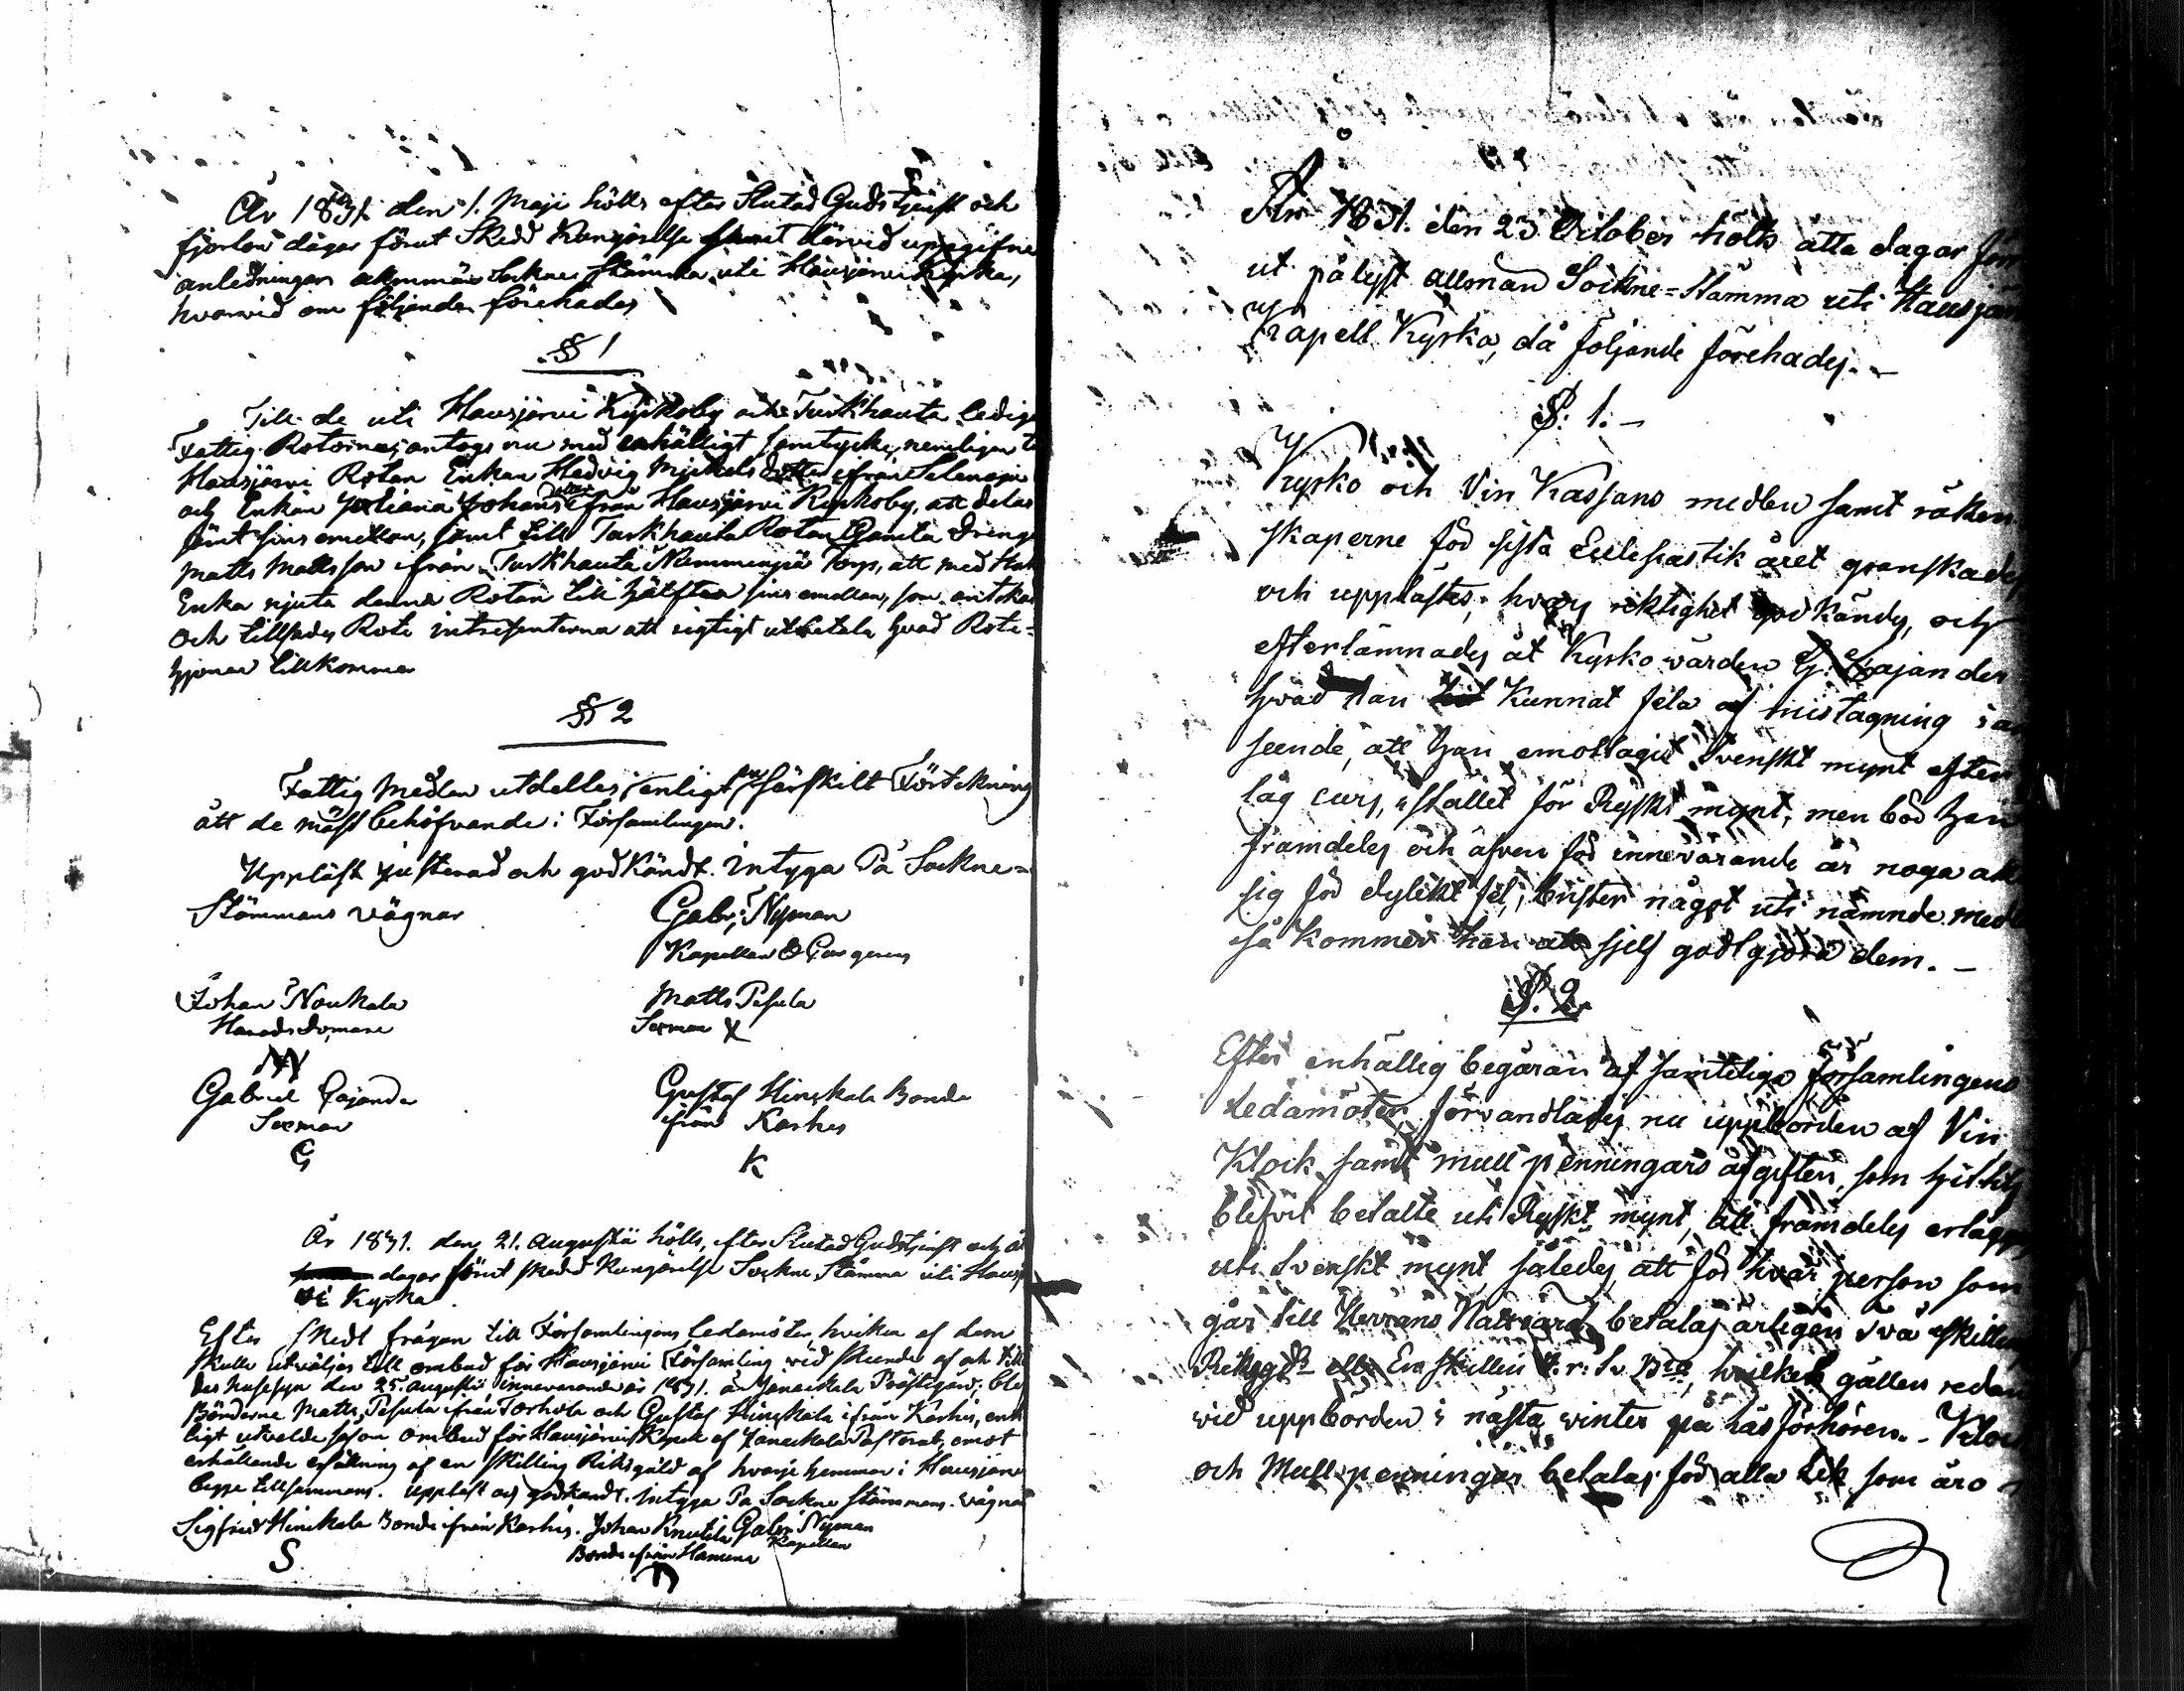 År 1831 den 1. Maji hölls efter Slutad Gudstjenst och
fjorton dagar förut Skedd Kungörelse samt dervid uppgifne
anledningar allmän Sockne Stämma uti Hausjärvi Kyrka,
hvarvid om följande förehades
§ 1
Till de uti Hausjärvi Kyrkoby och Turkhauta ledige
Fattig Rotorna, antogs nu med enhälligt samtycke, nemligen
Hausjärvi Rotan Enkan Hedvig Mickels dotter ifrån Selenoja
och Enkan Juliana Johans dotter ifrån Hausjärvi Kyrkoby, att delas
jämt sins emellan, samt till Turkhauta Rotan Gamla Dreng
Matts Mattsson ifrån Turkhauta Nummenpä Torp, att med
Enka njuta denna Rotan till hälften sins emellan, som antokos
och tillsades Rote intressenterna att rigtigt utbetala hvad Rote=
hjonen tillkommer
§ 2
Fattig Medlen utdeltes enligt särskilt Förtekning
ått de mäst behöfvande i Församlingen.
Uppläst justerad och godkändt. intyga På Sockne=
Stämmans vägnar
Gabr: Nyman
Kapellan
Johan Naukala
Häradsdomare
Matts Pesula
Sexman X
Gabriel Cajander
Sexman
G
Gustaf Hinskala Bonde
ifrån Karhis
K
År 1831. den 21. Augusti hölls, efter Slutad Gudstjenst och
dagar förut skedd Kungörelse Sockne Stämma uti Hausjär
vi Kyrka.
Efter skedt frågan till Församlingens ledamöter, hvilka af dem
skulle utväljas till ombud för Hausjärvi Församling vid skeende af och till
des husesyn den 25. Augusti innevarande år 1831. å Janackala Prästgård; blef
Bönderne Matts Pesula ifrån Torhola och Gustaf Hinskala ifrån Karhis, enh
ligt utvalde såsom Ombud för Hausjärvi af Janackala Pastorat, emot
erhållande ersättning af en Skilling Riksgäld af hvarje hemman i Hausjärvi
begge tillsammans. Uppläst och godkändt. intyga På Sockne stämmans vägnar
Sigfrid Hinskala Bonde ifrån Karhis. Johan Knutila Gabr: Nyman
Bonde ifrån Hamina Kapellan
S
År 1831. den 23 October hölts åtta dagar för
ut pålyst allmän Sockne=Stämma uti Hausjär
Kapell Kyrka, då följande förehades. -
§. 1. -
Kyrko och Vin Kassans medlen samt räken
skaperne för sista Ecclesiastik året granskades
och upplästes, hvars riktighet godkändes, och
efterlämnades åt Kyrkovärden G. Cajander
hvad han kunnat fela af mistagning i an
seende, att han emottagit Svenskt mynt efter
låg curs, i stället för Ryskt mynt, men böd han
framdeles och äfven för innevarande år noga akt
sig för dylikt fel; brister något uti nämnde med
så kommer han att sjelf godtgjöra dem. -
§. 2.
Efter enhällig begäran af samtelige församlingens
Ledamöter, förvandlades nu uppbörden af Vin
Klock samt mull penningars afgiften, som hit tils
blifvit betalte uti Ryskt mynt, att framdeles erlägga
uti Svenskt mynt, således, att för hvar person som
går till Herrans Nattvard, betalas årligen två skilling
Riksgds eller En skilling Sv. Bco, hvilket gäller redan
vid uppbörden i nästa vinter på läsförhören. - Klock
och Mull penningar betalas för alla Lik som äro